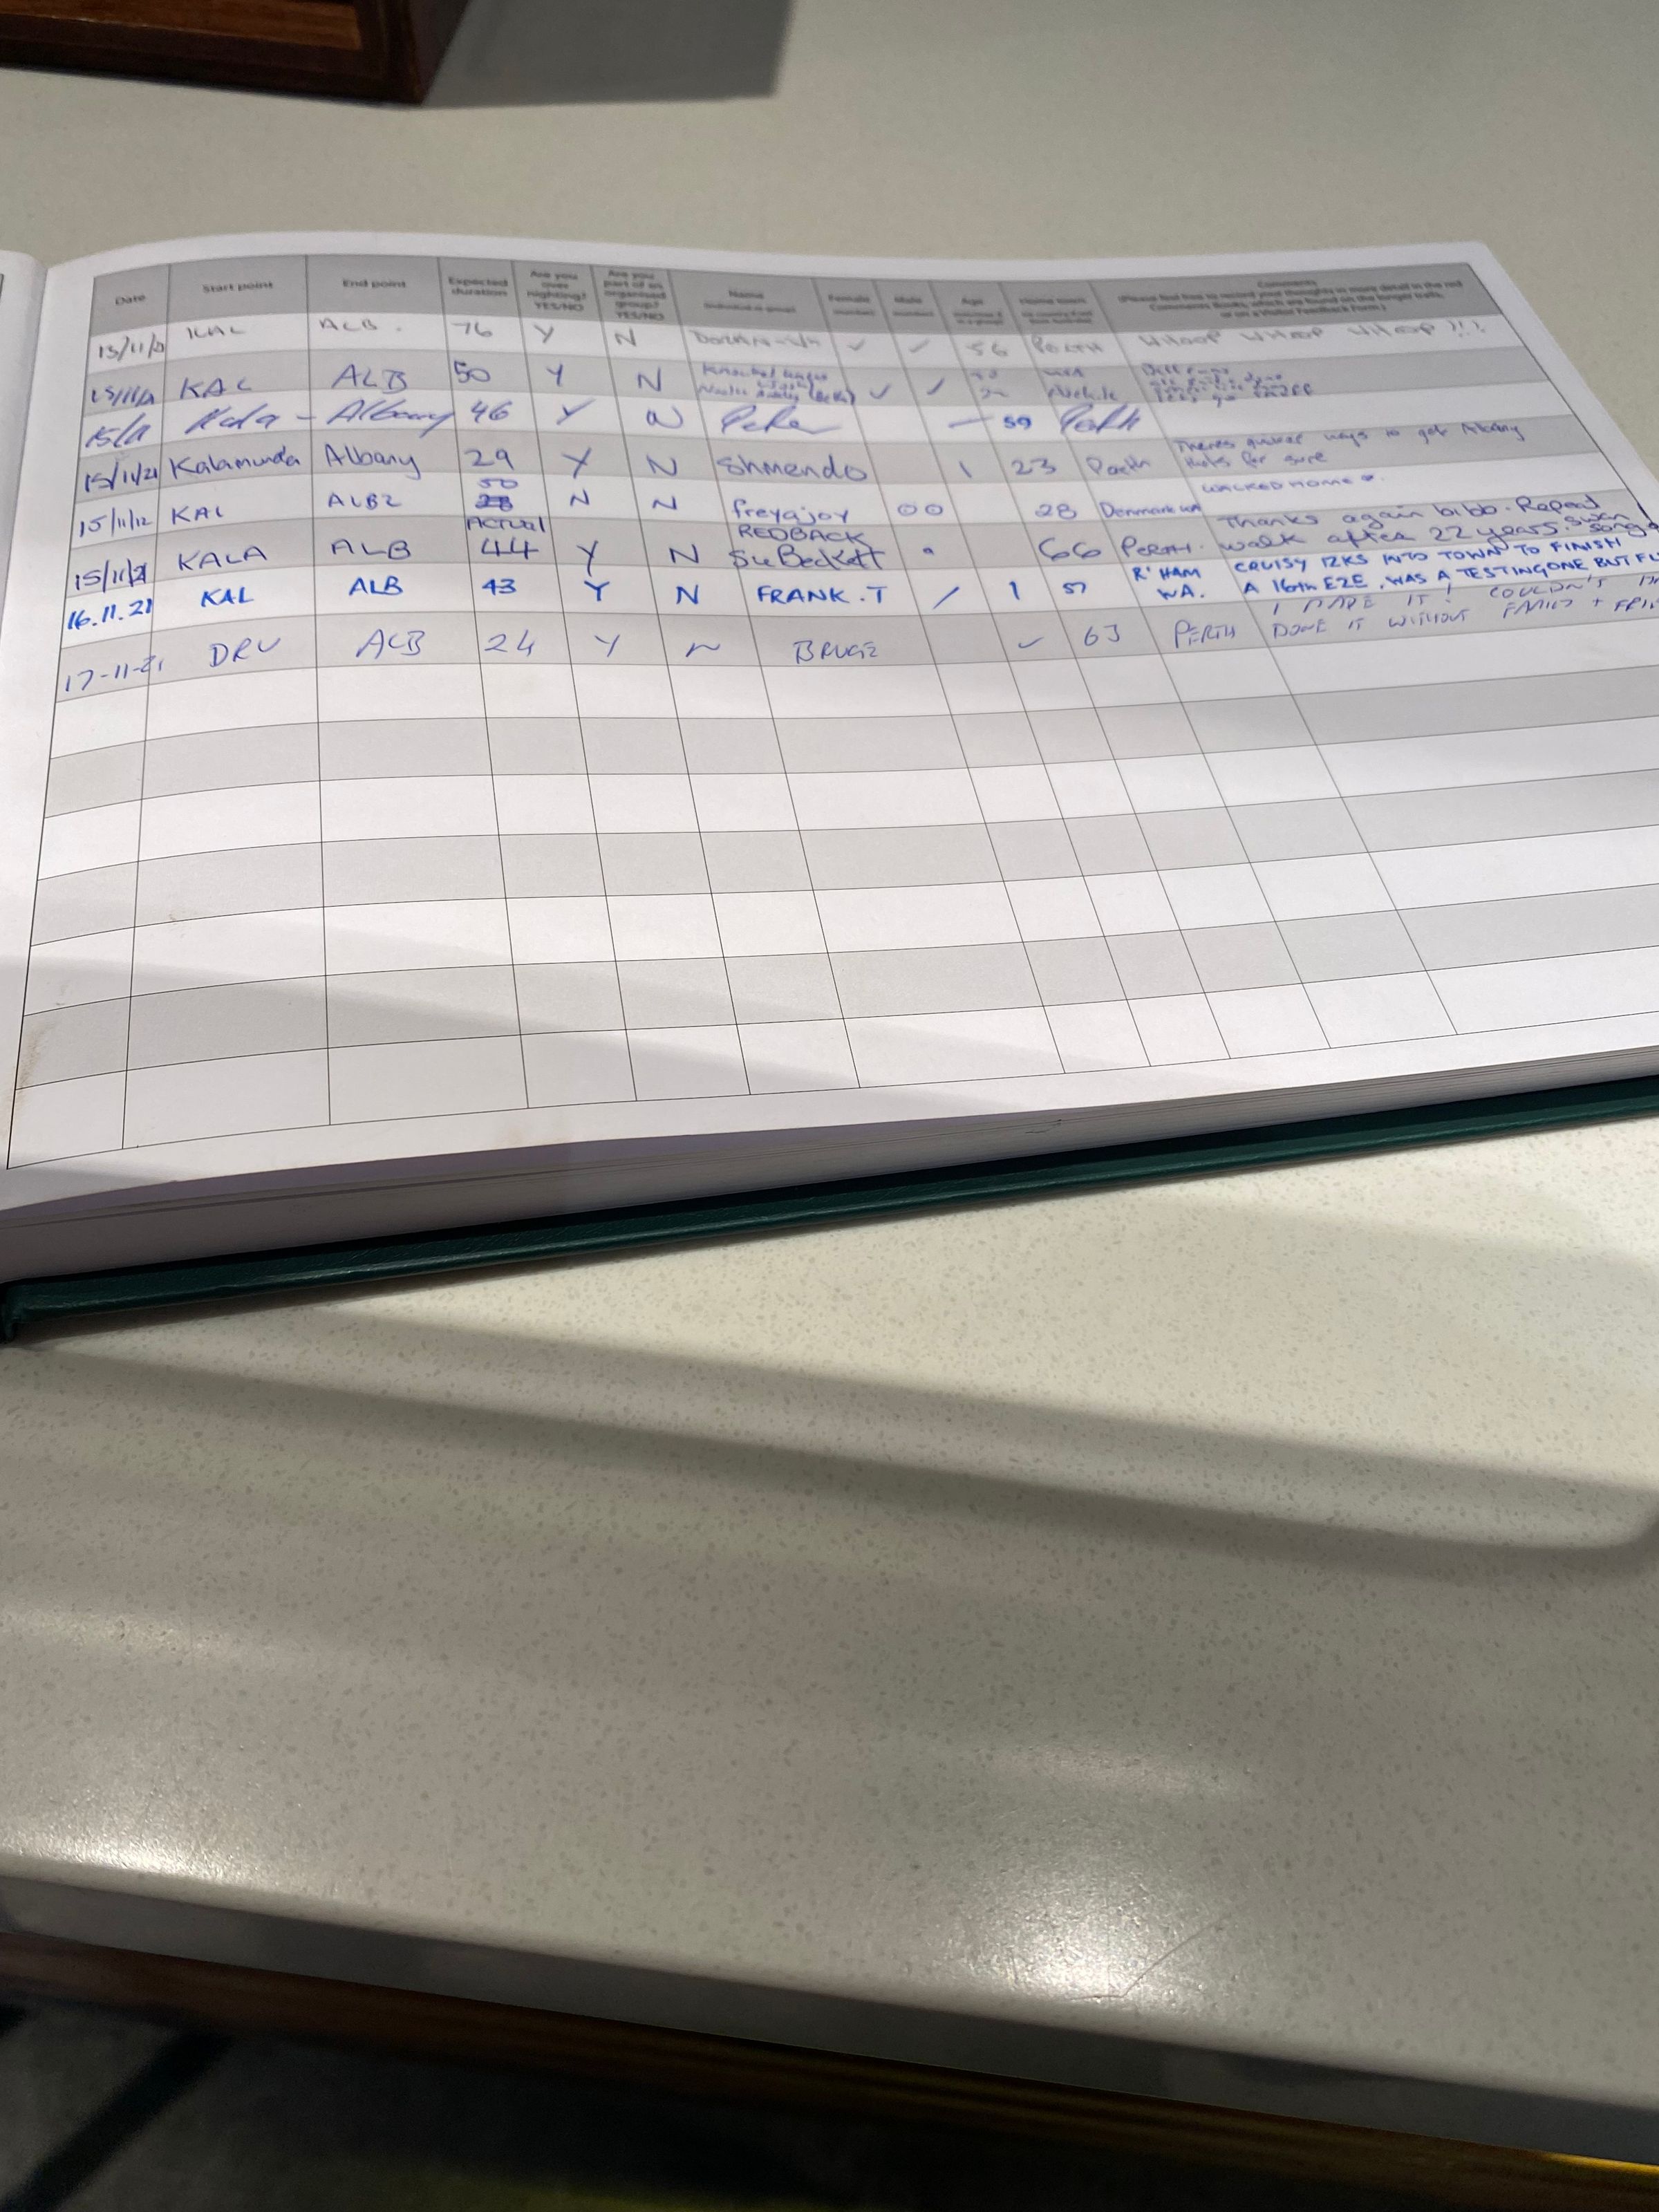 Date Start point End point Expected duration Are you over nighting? YES/NO Are you part of an organised group? YES/NO Name Female Male Age Home town Comments
(Please feel free to record your thoughts in more detail in the red
Comments Books, which are found on the longer trails,
or on a Visitor Feedback Form.)
KAL ALB. 76 Y N 56 PERTH WHOOP WHOOP WHOOP !!!
KAL ALB 50 Y N
Kala - Albany 46 Y N Peter 59 Perth
15/11/21 Kalamunda Albany 29 Y N Shmendo 1 23 Perth Theres quicker ways to get Albany
thats for sure
15/11/12 KAL ALBZ 50 N N freyajoy 00 28 Denmark WA WALKED HOME
15/11/21 KALA ALB ACTUAL 44 Y N REDBACK Su Beckett 66 PERTH. Thanks again bibb. Repeat
walk after 22 years. swan song
16.11.21 KAL ALB 43 Y N FRANK.T / 1 57 R'HAM WA. CRUISY 12KS INTO TOWN TO FINISH
A 16th E2E. WAS A TESTING ONE BUT
17-11-21 DRU ALB 24 Y N BRUCE ✓ 63 PERTH I MADE IT! COULDN'T
DONE IT WITHOUT FAMILY +